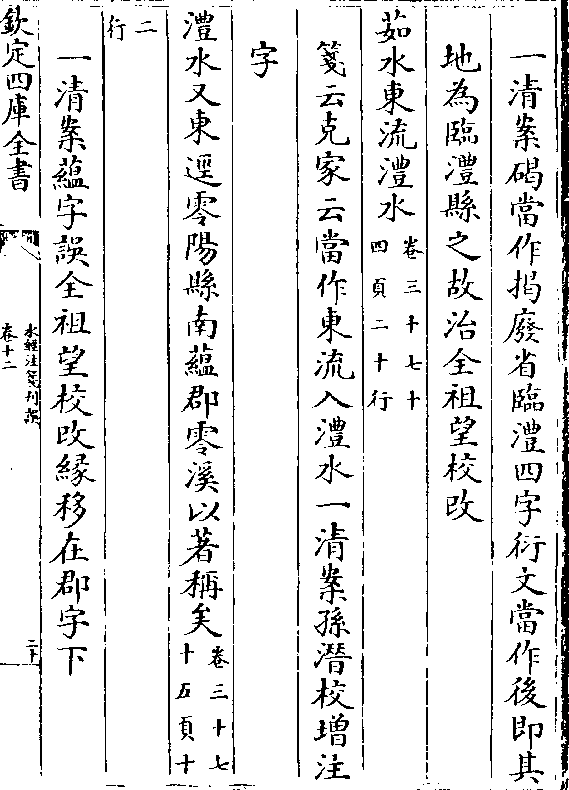 一清案碣當作揭廢省臨澧四字衍文當作後即其
地為臨澧縣之故治全祖望校改
茹水東流澧水卷三十七十
四頁二十行
箋云克家云當作東流入澧水一清案孫潛校增注
字
澧水又東逕零陽縣南蘊郡零溪以著稱矣卷三十七
十五頁十
二
行
一清案蘊字誤全祖望校改緣移在郡字下
欽定四庫全書
水經注箋刋誤
卷十二
二下